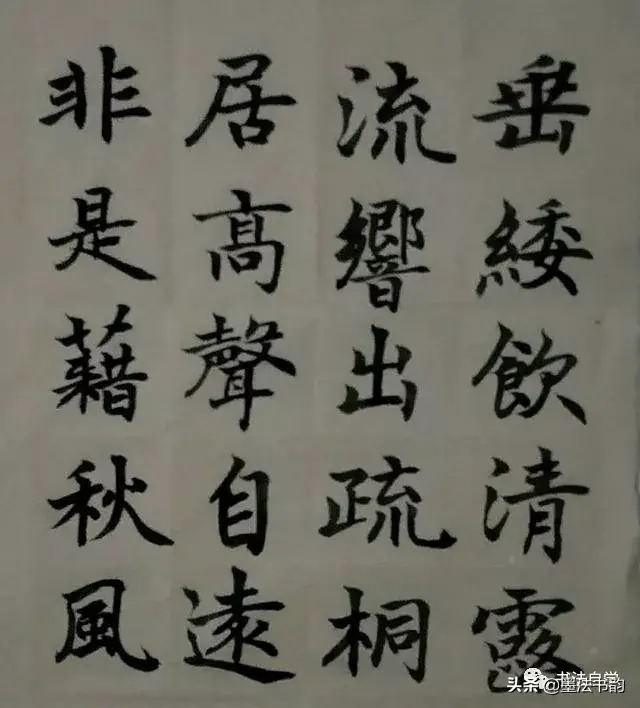 垂緌飲清露
流響出疏桐
居高聲自遠
非是藉秋風
书法自学
头条@墨法书韵